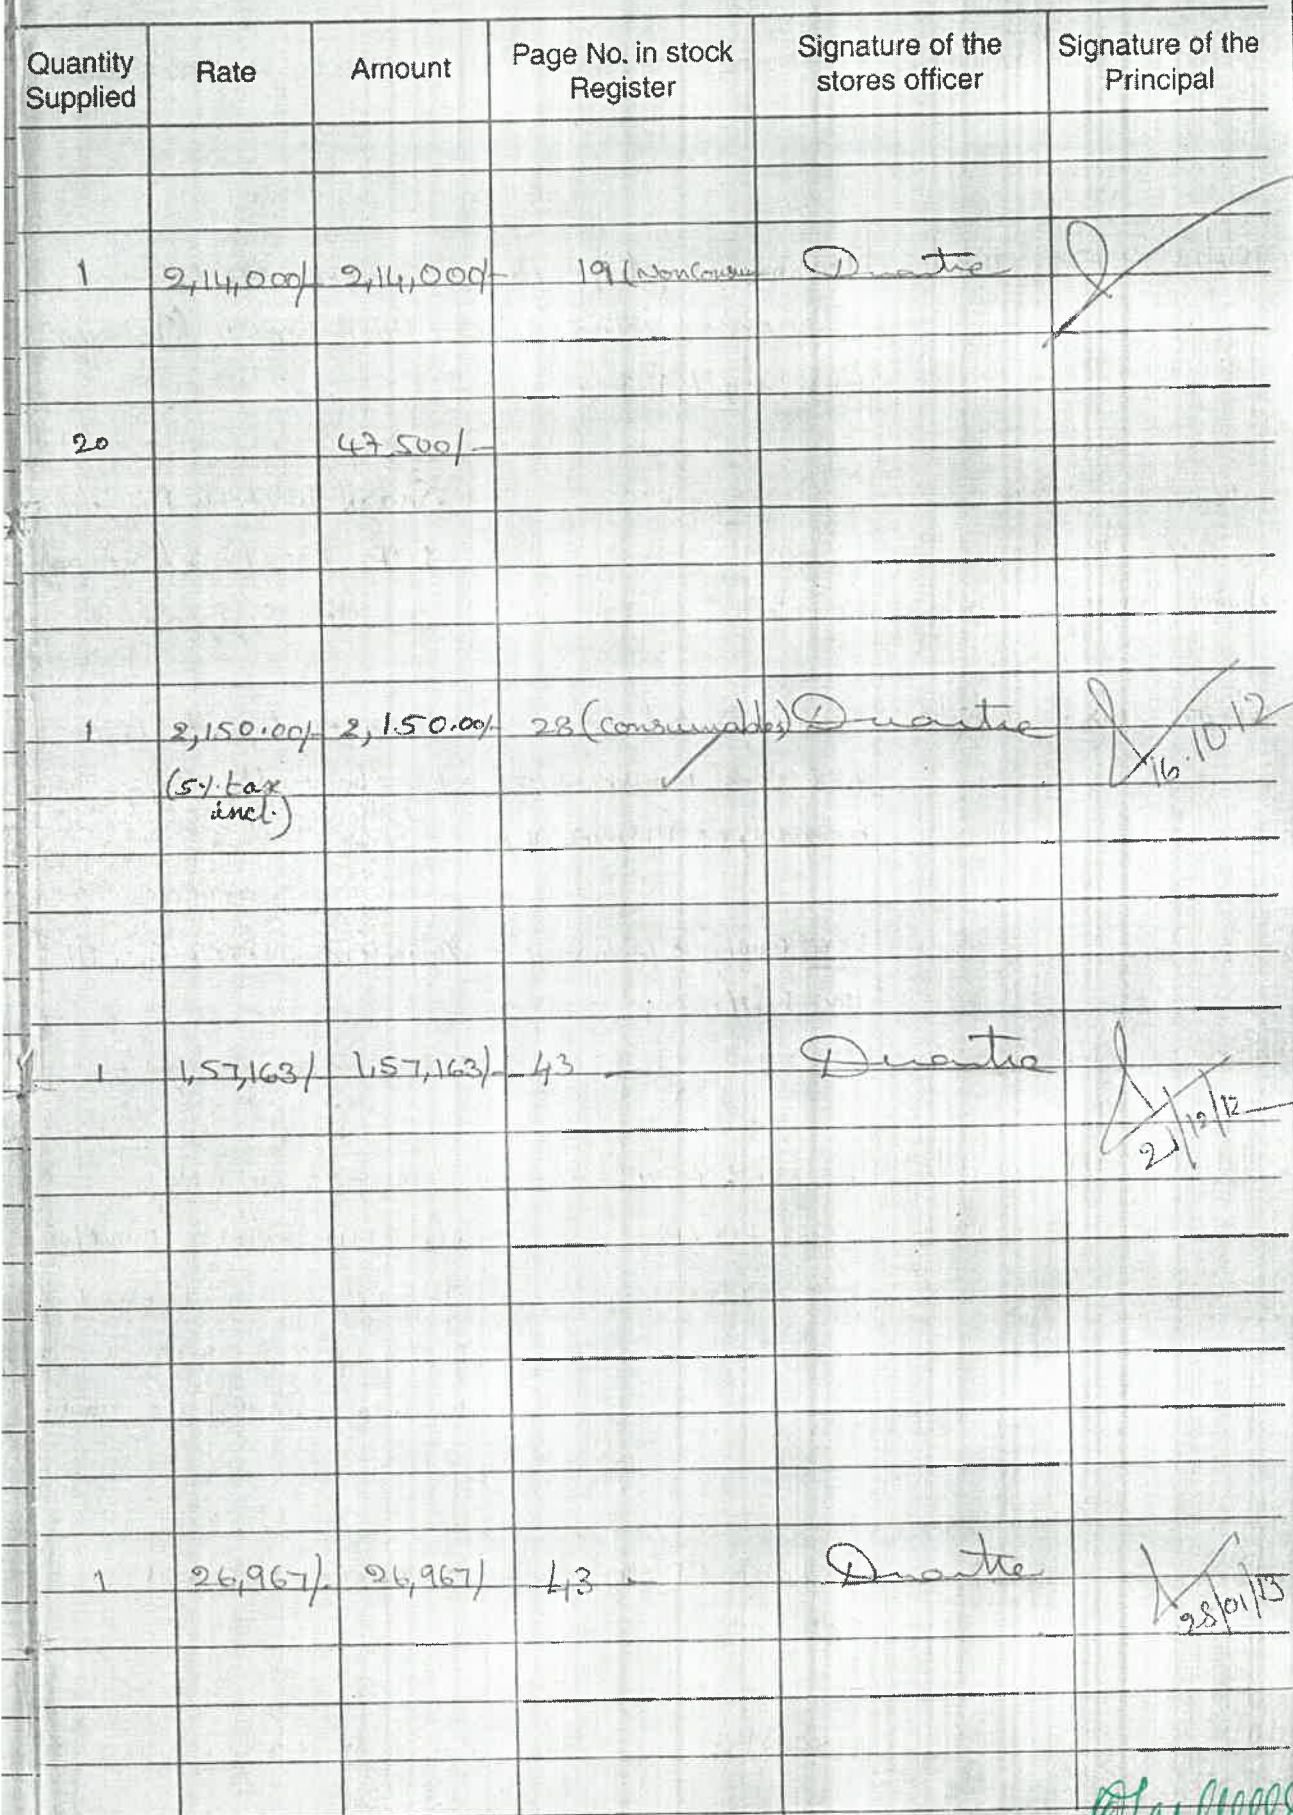 Quantity Supplied Rate Amount Page No. in stock Register Signature of the stores officer Signature of the Principal
1 2,14,000/- 2,14,000/- 19 (NonConsu
20 47,500/-
1 2,150.00/- 2,150.00/- 28 (Consumables) 16.10.12
(5% tax
incl.)
1 1,57,163/- 1,57,163/- 43 21/12/12
1 26,967/- 26,967/- 43 28/01/13